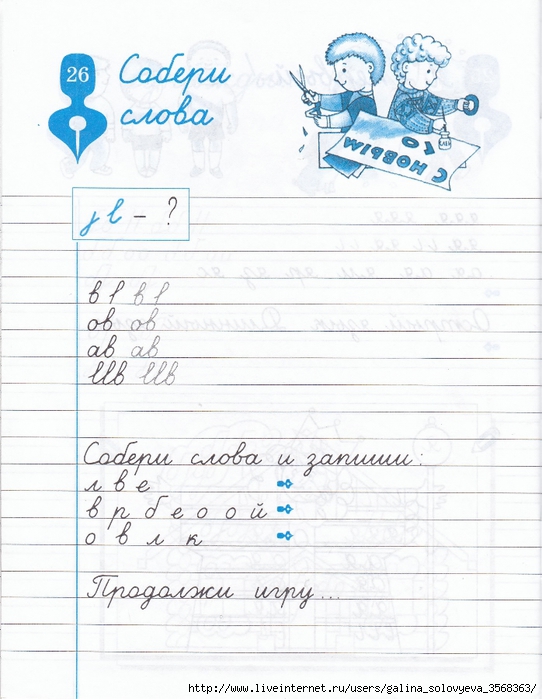 26
Собери
слова
С НОВЫМ
ГО
– ?
в
ов ов
ав ав
Собери слова и запиши:
л в е
в р б е о о й
о в л к
Продолжи игру...
http://www.liveinternet.ru/users/galina_solovyeva_3568363/